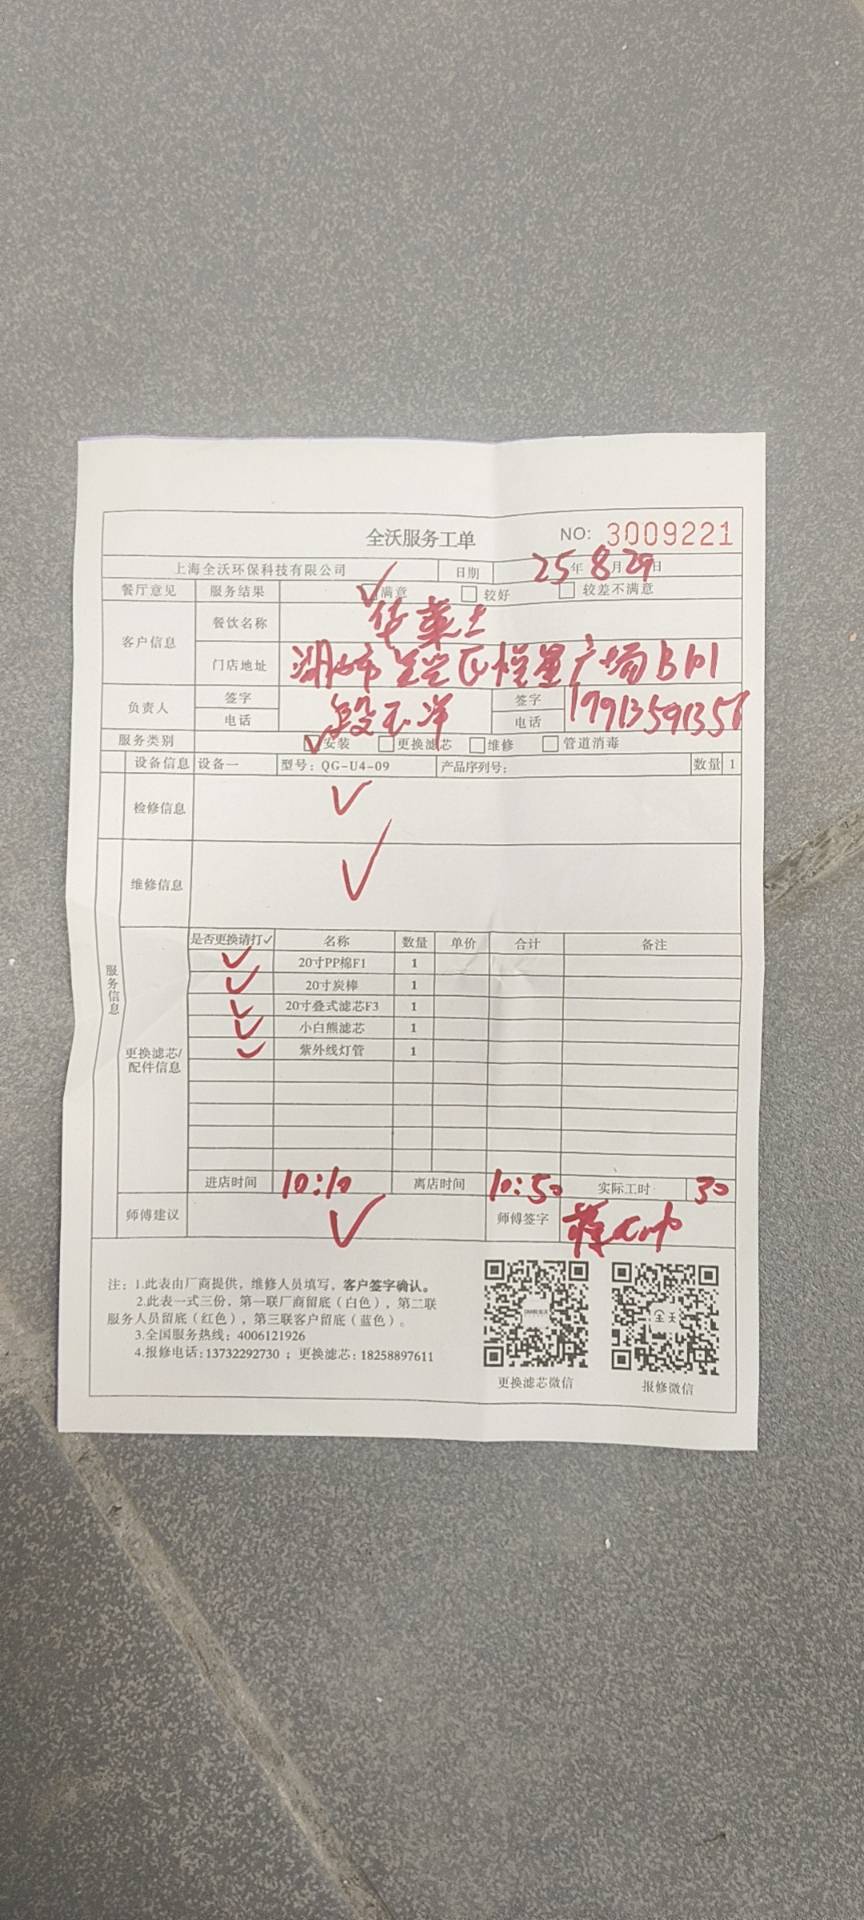 全沃服务工单 NO: 3009221
上海全沃环保科技有限公司 日期 25年8月29日
餐厅意见 服务结果 ✓满意 □较好 □较差不满意
客户信息 餐饮名称 华莱士
门店地址 湖州市 广场B101
负责人 签字 段玉洋 签字
电话 电话 19913591358
服务类别 ✓安装 □更换滤芯 □维修 □管道消毒
设备信息 设备一 型号：QG-U4-09 产品序列号： 数量 1
检修信息 ✓
维修信息 ✓
服务信息
是否更换请打✓ 名称 数量 单价 合计 备注
✓ 20寸PP棉F1 1
✓ 20寸炭棒 1
✓ 20寸叠式滤芯F3 1
✓ 小白熊滤芯 1
✓ 紫外线灯管 1
更换滤芯/
配件信息
进店时间 10:10 离店时间 10:50 实际工时 30
师傅建议 ✓ 师傅签字
注：1.此表由厂商提供，维修人员填写，客户签字确认。
2.此表一式三份，第一联厂商留底（白色），第二联
服务人员留底（红色），第三联客户留底（蓝色）。
3.全国服务热线：4006121926
4.报修电话：13732292730 ；更换滤芯：18258897611
更换滤芯微信 报修微信